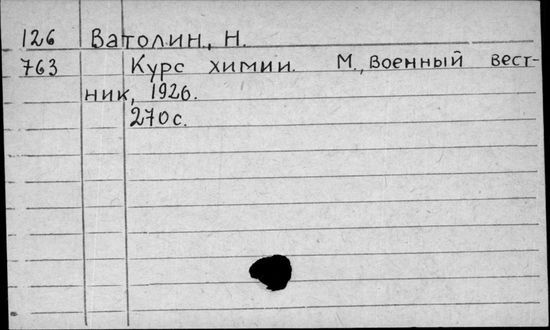 126 Ватолин, Н.
763 Курс химии. М., Военный вест-
ник, 1926.
270 с.